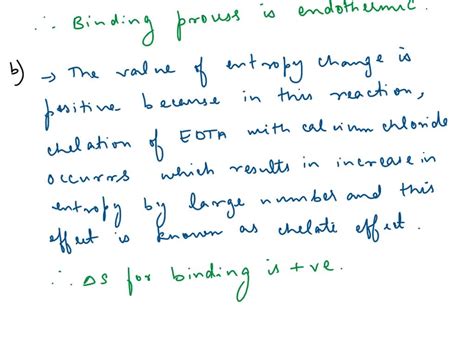 ∴ Binding prouss is endothermic.
b) → The value of entropy change is
positive because in this reaction,
chelation of EDTA with calcium chloride
occurrs which results in increase in
entropy by large number and this
effect is known as chelate effect.
∴ ΔS for binding is +ve.